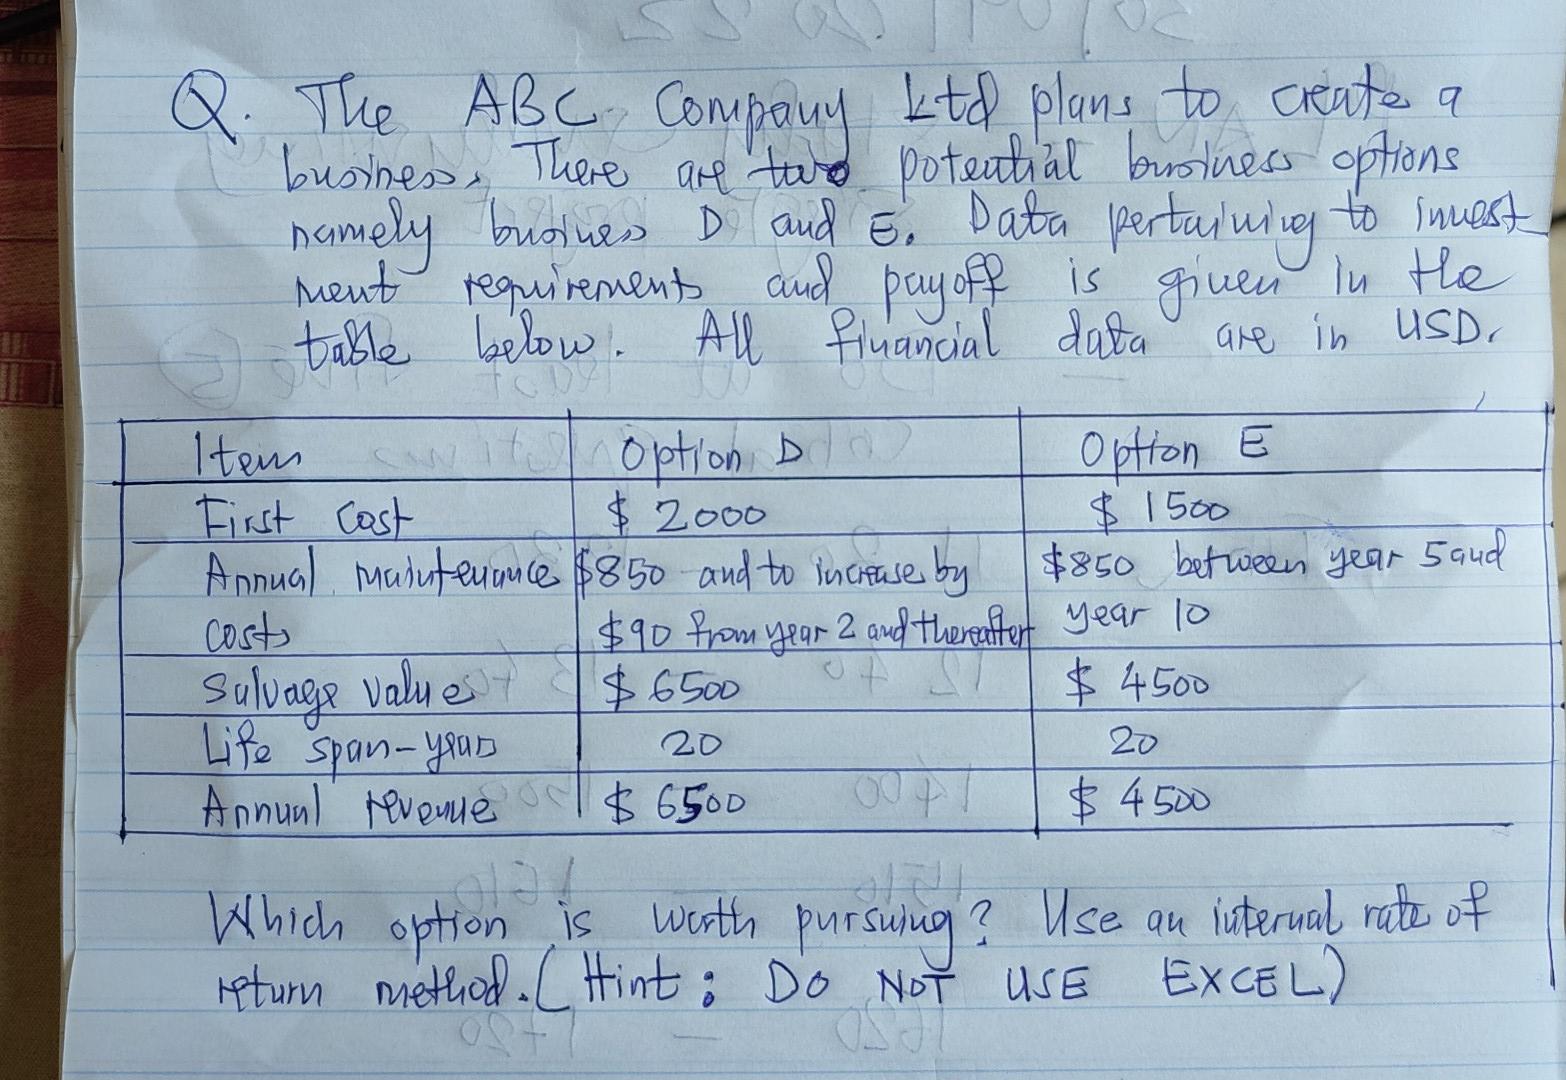 Q. The ABC Company Ltd plans to create a
business. There are two potential business options
namely business D and E. Data pertaining to invest
ment requirements and payoff is given in the
table below. All financial data are in USD.
Item Option D Option E
First Cost $ 2000 $ 1500
Annual maintenance $850 and to increase by $850 between year 5 and
costs $90 from year 2 and thereafter year 10
Salvage value $ 6500 $ 4500
Life span-years 20 20
Annual revenue $ 6500 $ 4500
Which option is worth pursuing? Use an internal rate of
return method. (Hint: DO NOT USE EXCEL)